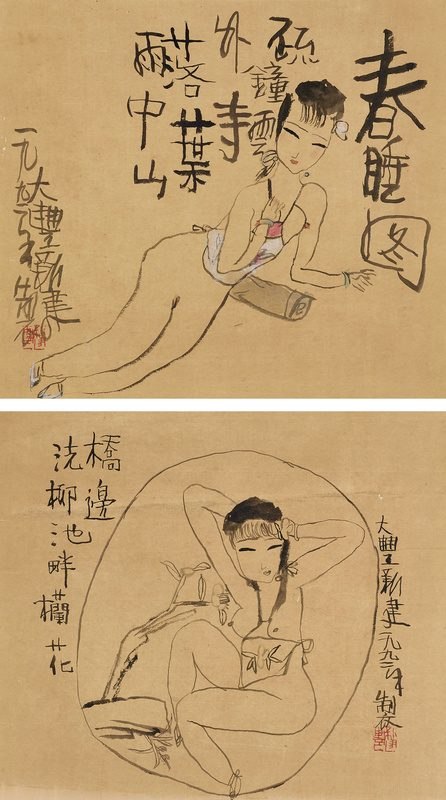 春睡图
疏鐘雲
外寺
落葉
雨中山
大豐新建
一九九二年制
橋邊
洗柳池畔欄花
大豐新建一九九二年
制